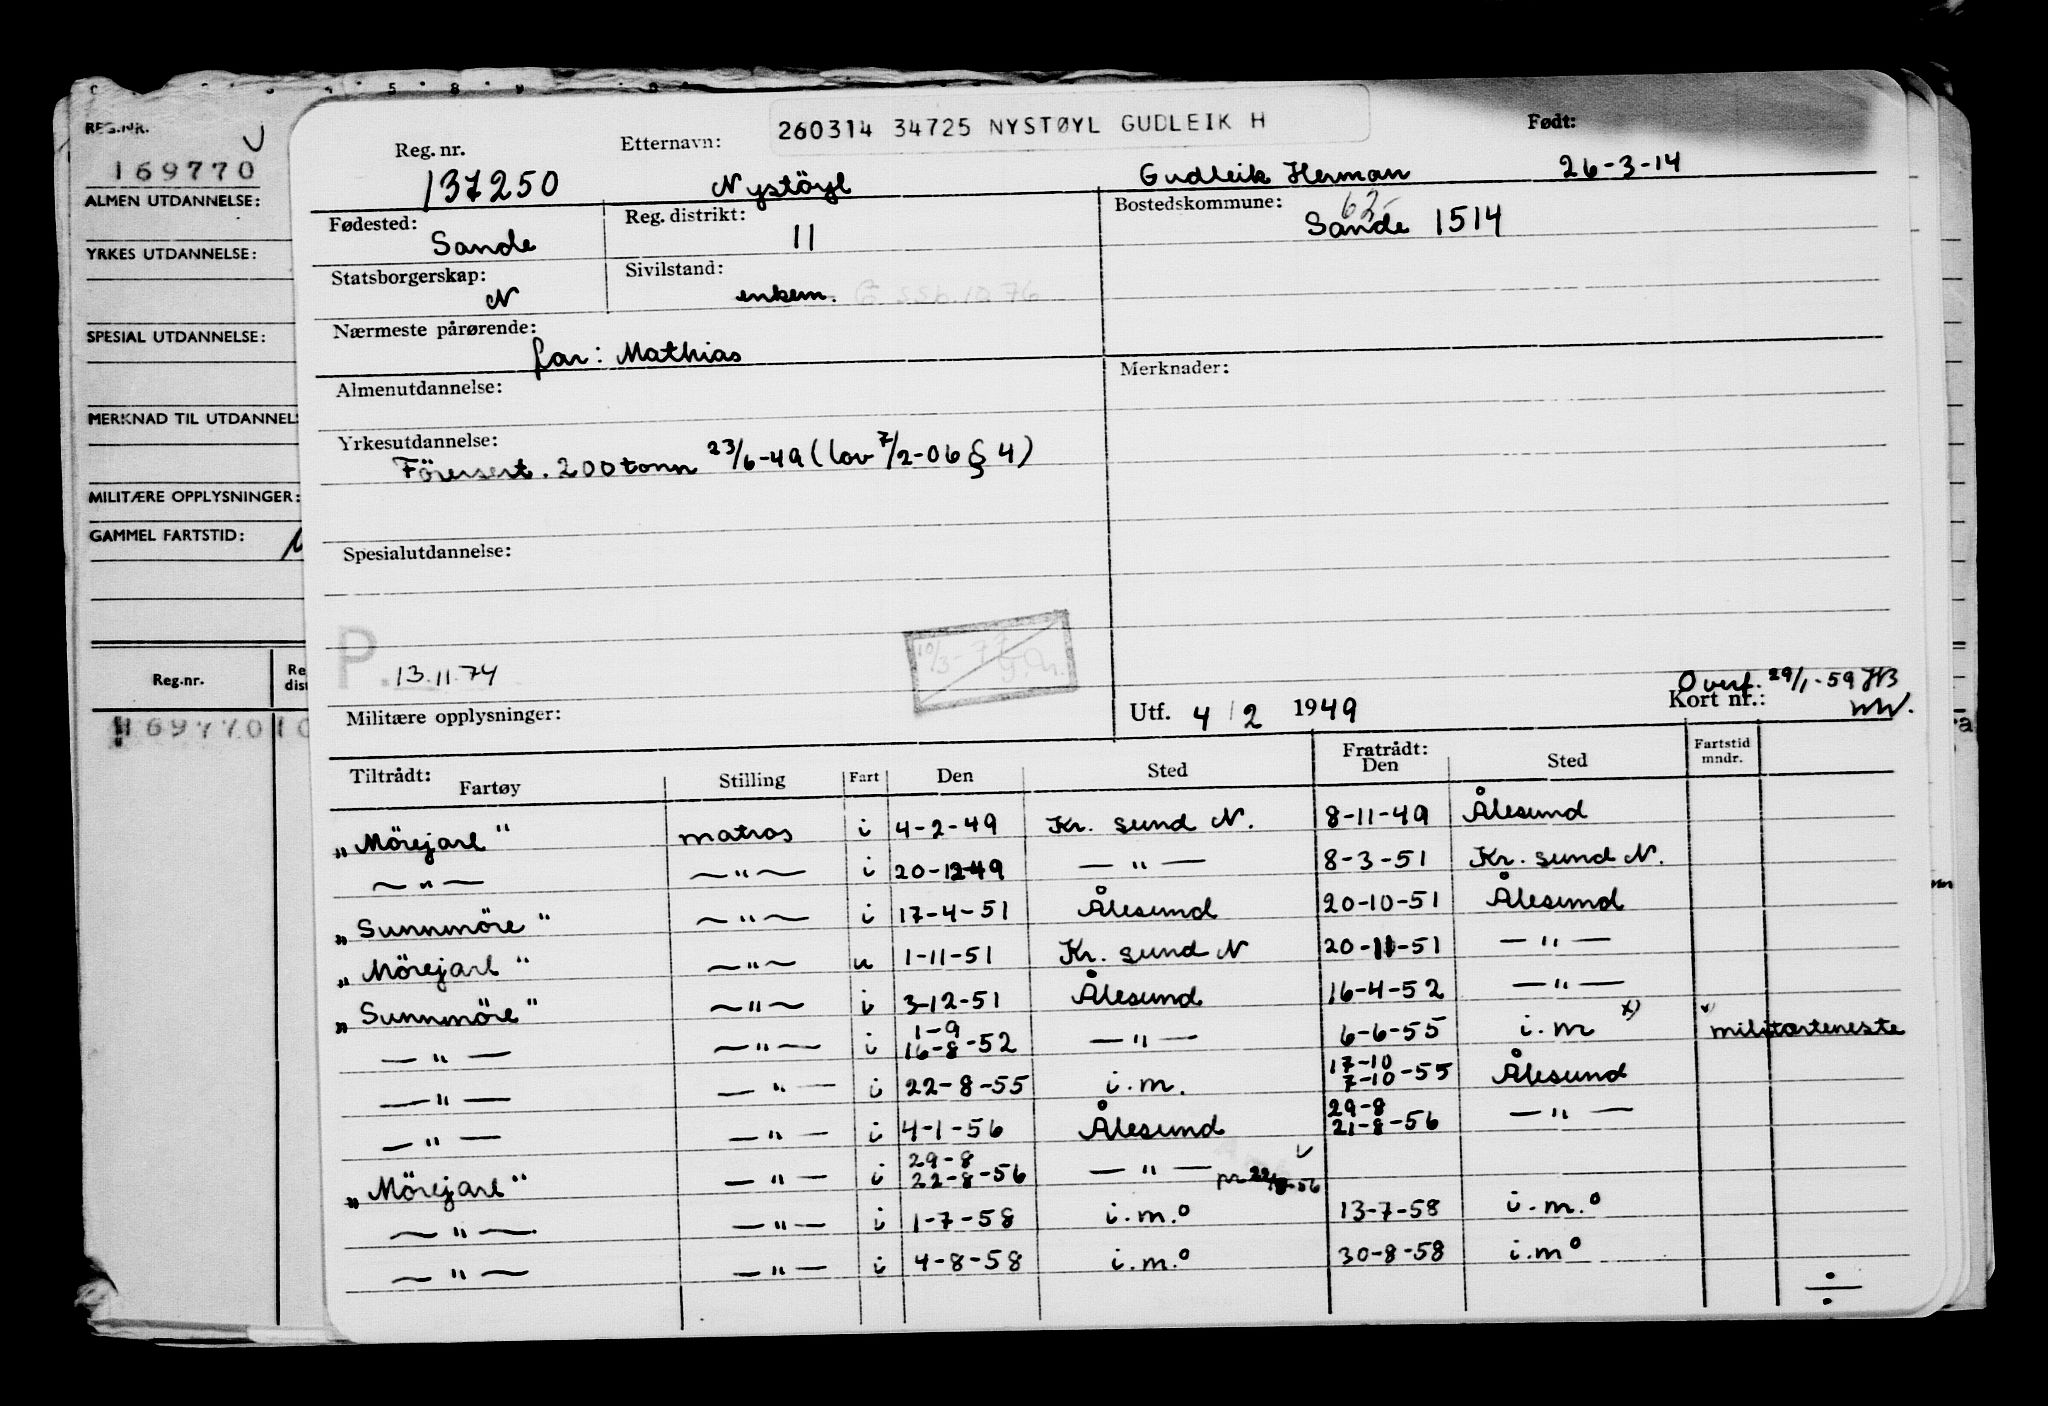 REG.NR.
169770
ALMEN UTDANNELSE:
YRKES UTDANNELSE:
SPESIAL UTDANNELSE:
MERKNAD TIL UTDANNELS
MILITÆRE OPPLYSNINGER:
GAMMEL FARTSTID:
Reg.nr.
Re
dist
169770 10
260314 34725 NYSTØYL GUDLEIK H
Reg. nr. Etternavn: Født:
137250 Nystöyl Gudleik Herman 26-3-14
Fødested: Reg. distrikt: Bostedskommune: 62-
Sande 11 Sande 1514
Statsborgerskap: Sivilstand:
N enkem. G. SSb. 10 76
Nærmeste pårørende:
far: Mathias
Almenutdannelse: Merknader:
Yrkesutdannelse:
Försert. 200 tonn 23/6-49 (lov 7/2-06 § 4)
Spesialutdannelse:
P. 13.11.74 10/3-77
Overf. 29/1-59 HB
Militære opplysninger: Utf. 4/2 1949 Kort nr.:
Tiltrådt: Fratrådt: Fartstid
Fartøy Stilling Fart Den Sted Den Sted mndr.
„Mörejarl" matros i 4-2-49 Kr. sund N. 8-11-49 Ålesund
—"— —"— i 20-12-49 —"— 8-3-51 Kr. sund N.
„Sunnmöre" —"— i 17-4-51 Ålesund 20-10-51 Ålesund
„Mörejarl" —"— u 1-11-51 Kr. sund N 20-11-51 —"—
„Sunnmöre" —"— i 3-12-51 Ålesund 16-4-52 —"—
—"— —"— i 1-9 16-8-52 —"— 6-6-55 i.m x) militærteneste
—"— —"— i 22-8-55 i.m. 17-10 7-10-55 Ålesund
—"— —"— i 4-1-56 Ålesund 29-8 21-8-56 —"—
„Mörejarl" —"— i 29-8 22-8-56 —"— pr 22/8-56
—"— —"— i 1-7-58 i.m.o 13-7-58 i.m.o
—"— —"— i 4-8-58 i.m.o 30-8-58 i.mo
÷